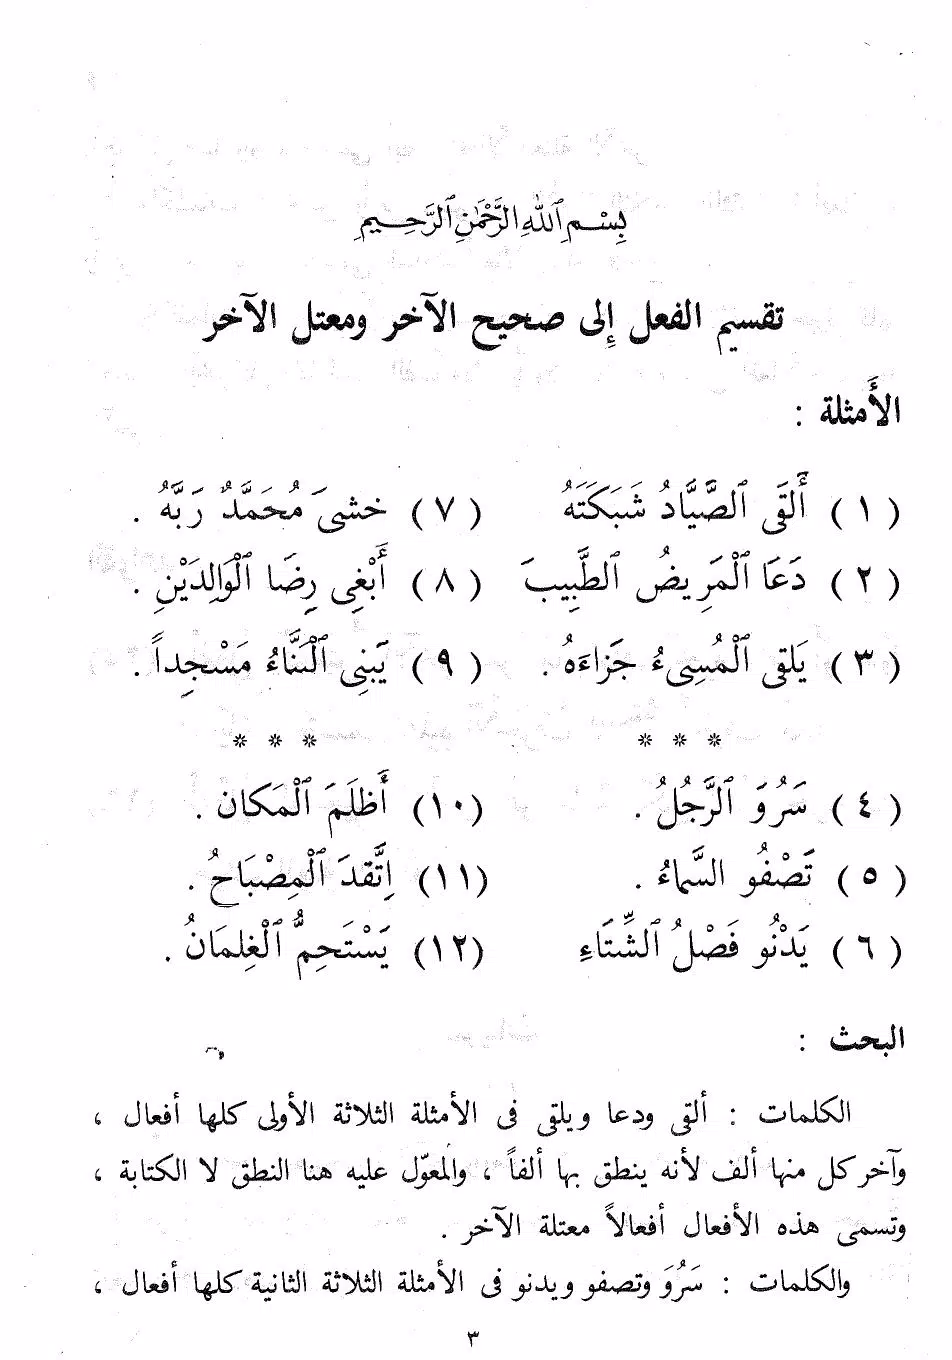 بِسْمِ ٱللَّهِ ٱلرَّحْمَٰنِ ٱلرَّحِيمِ
تقسيم الفعل إِلى صحيح الآخر ومعتل الآخر
الأَمثلة :
( ١ ) أَلْقَى ٱلصَّيَّادُ شَبَكَتَهُ ( ٧ ) خشىَ مُحَمَّدٌ رَبَّهُ .
( ٢ ) دَعَا ٱلْمَرِيضُ ٱلطَّبِيبَ ( ٨ ) أَبْغِى رِضَا ٱلْوَالِدَيْنِ .
( ٣ ) يَلقى ٱلْمُسِىءُ جَزَاءَهُ . ( ٩ ) يَبنِى ٱلْبَنَّاءُ مَسْجِداً .
* * * * * *
( ٤ ) سَرُوَ ٱلرَّجُلُ . (١٠) أَظلَمَ ٱلْمَكان .
( ٥ ) تَصْفُو السَّماءُ . (١١) اِتَّقدَ ٱلْمِصْبَاحُ .
( ٦ ) يَدْنُو فَصْلُ ٱلشِّتَاءِ (١٢) يَسْتَحِمُّ ٱلْغِلمَانُ .
البحث :
الكلمات : ألقى ودعا ويلقى فى الأمثلة الثلاثة الأولى كلها أفعال ،
وآخر كل منها ألف لأنه ينطق بها ألفاً ، والمعوّل عليه هنا النطق لا الكتابة ،
وتسمى هذه الأفعال أفعالاً معتلة الآخر .
والكلمات : سَرُوَ وتصفو ويدنو فى الأمثلة الثلاثة الثانية كلها أفعال ،
٣